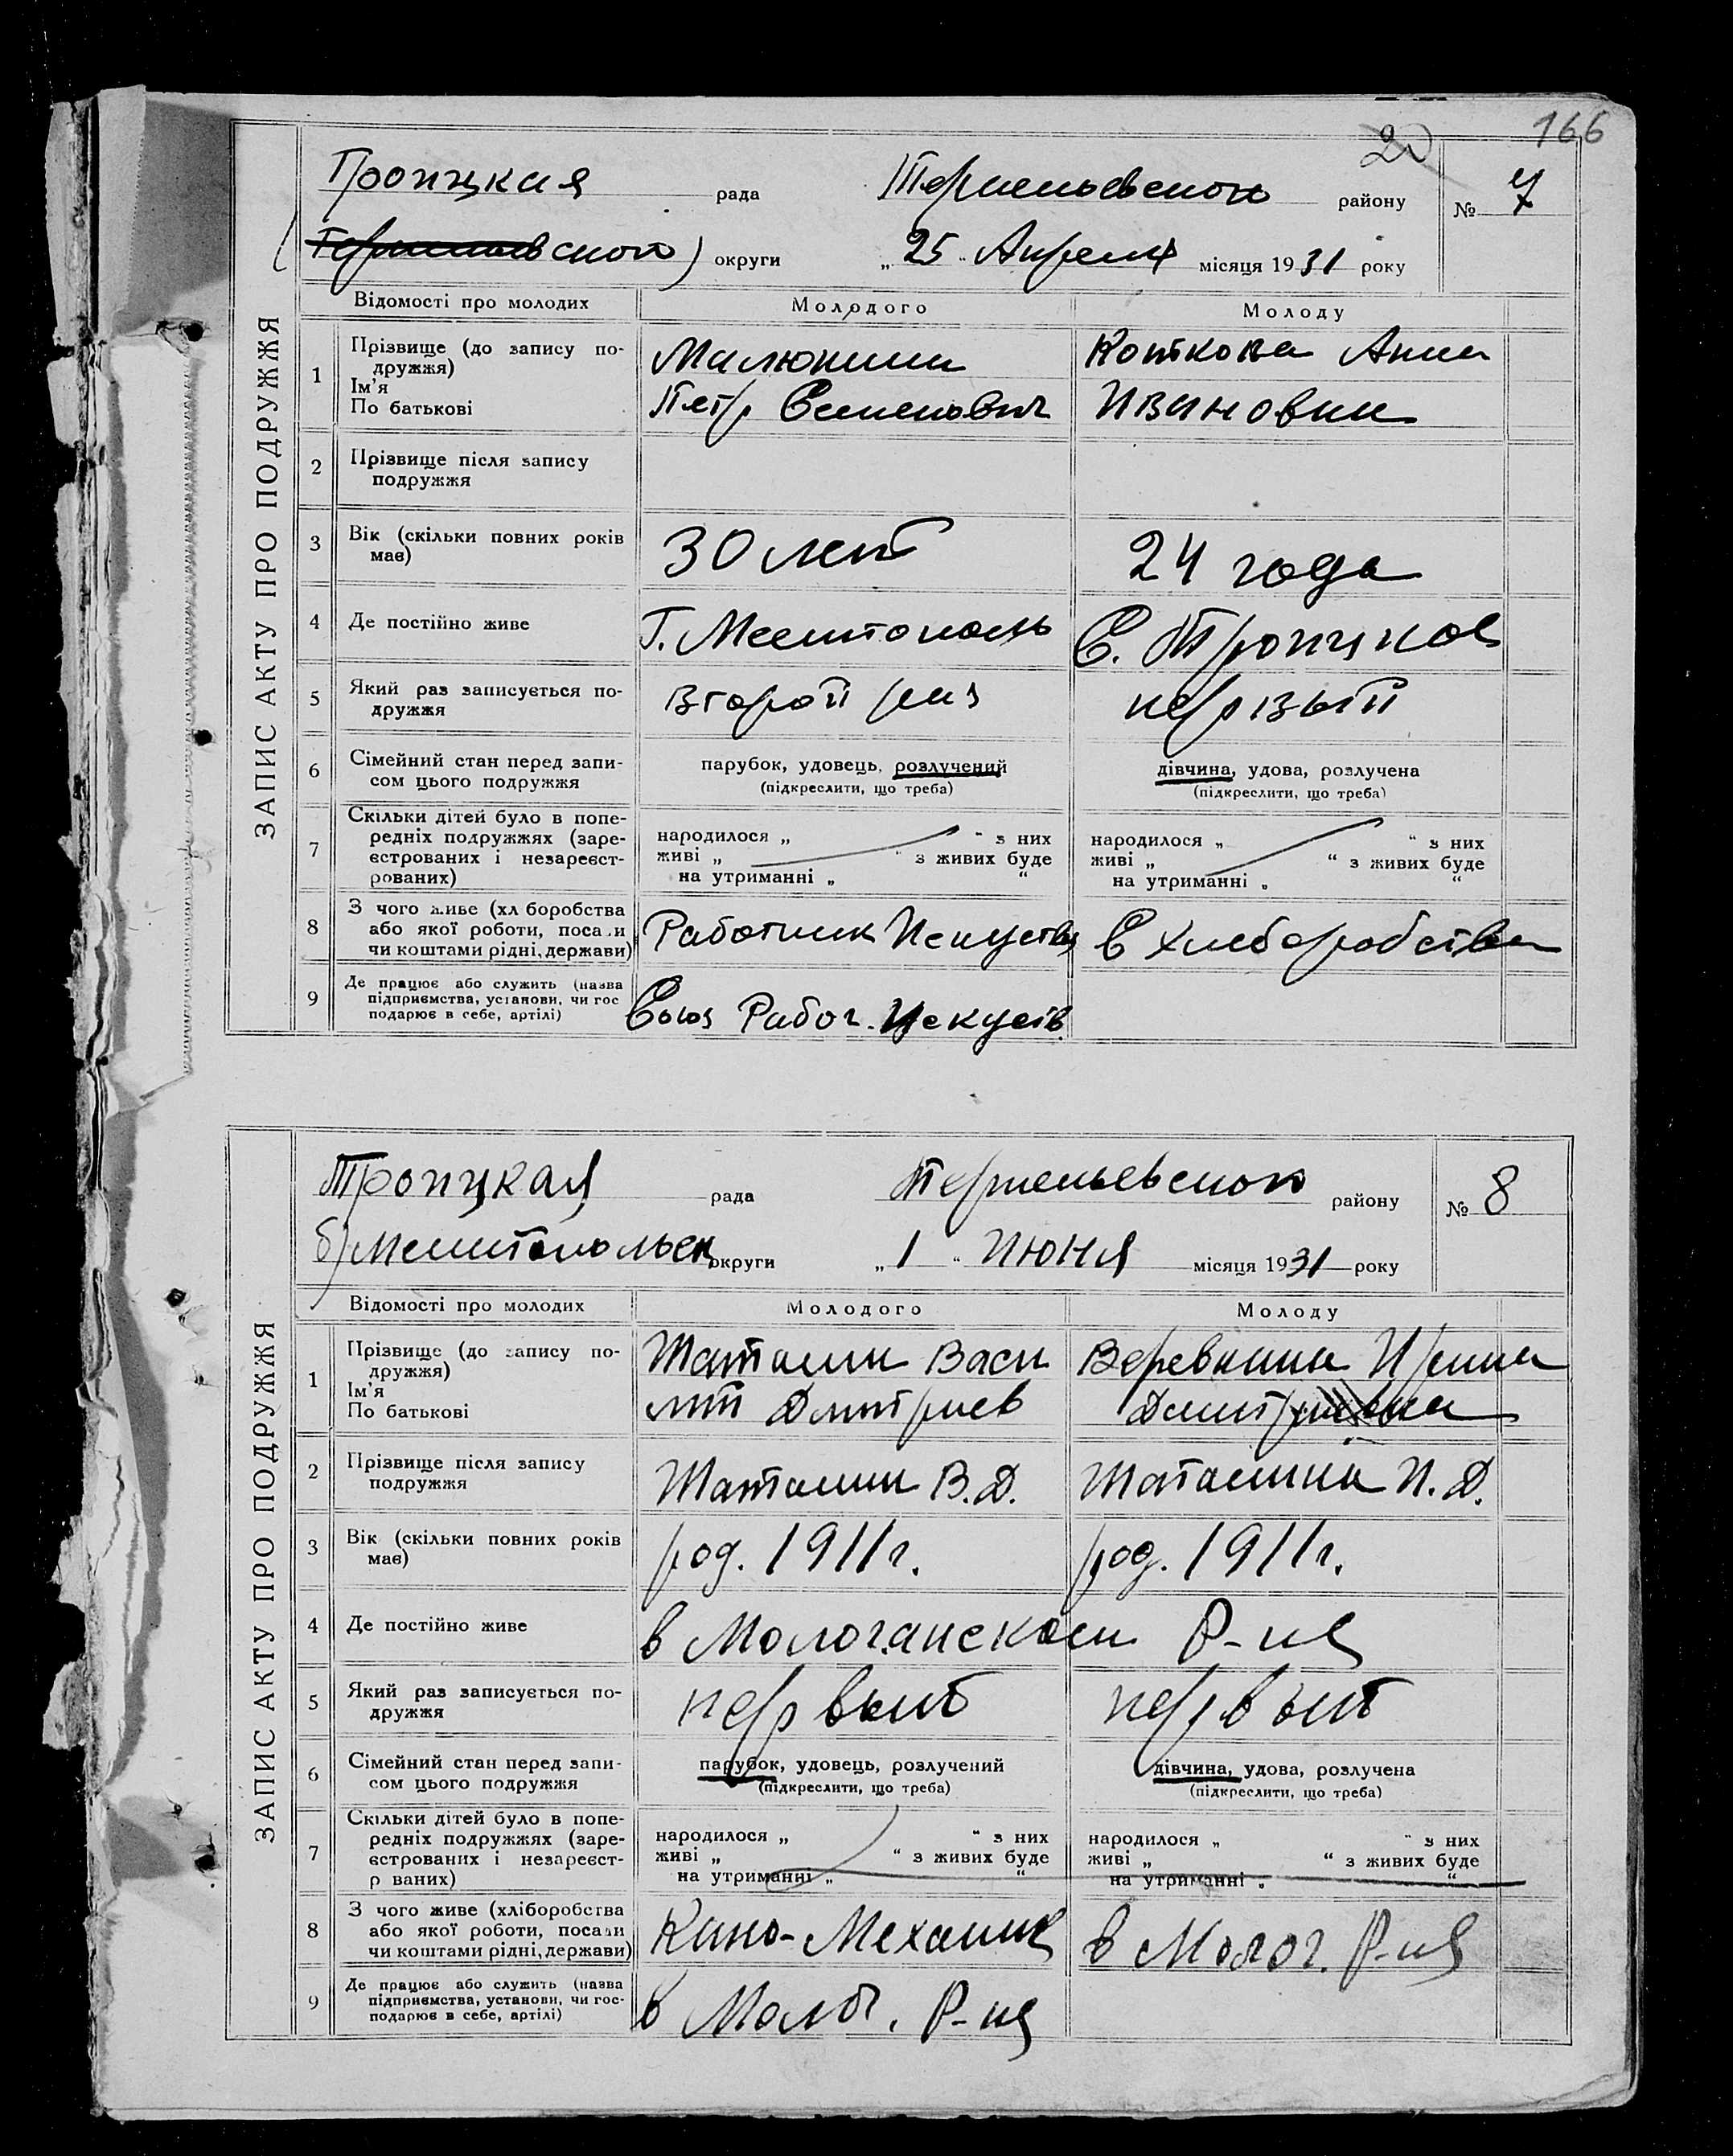 166
20
Троицкая рада Терпеньевского району № 7
вского) округи „ 25 “ Апреля місяця 1931 року
ЗАПИС АКТУ ПРО ПОДРУЖЖЯ
Відомості про молодих Молодого Молоду
1 Прізвище (до запису по-
дружжя)
Ім'я
По батькові
Малюкин
Петр Семенович
Коткова Анна
Ивановна
2 Прізвище після запису
подружжя
3 Вік (скільки повних років
має)
30 лет
24 года
4 Де постійно живе
Г. Мелитополь
С. Троицкое
5 Який раз записується по-
дружжя
второй раз
первый
6 Сімейний стан перед запи-
сом цього подружжя
парубок, удовець, розлучений
(підкреслити, що треба)
дівчина, удова, розлучена
(підкреслити, що треба)
7 Скільки дітей було в попе-
редніх подружжях (заре-
єстрованих і незареєст-
рованих)
народилося „ “ з них
живі „ “ з живих буде
на утриманні „ “
народилося „ “ з них
живі „ “ з живих буде
на утриманні „ “
8 З чого живе (хл боробства
або якої роботи, посади
чи коштами рідні, держави)
Работник Искуства
С хлеборобства
9 Де працює або служить (назва
підприємства, установи, чи гос
подарює в себе, артілі)
Союз Работ. Искуств.
Троицкая рада Терпеньевского району № 8
б) Мелитопольск округи „ 1 “ Июня місяця 1931 року
ЗАПИС АКТУ ПРО ПОДРУЖЖЯ
Відомості про молодих Молодого Молоду
1 Прізвище (до запису по-
дружжя)
Ім'я
По батькові
Шаталин Васи
лий Дмитриев
Веревкина Ирина
Дмитриевна
2 Прізвище після запису
подружжя
Шаталин В.Д.
Шаталина И.Д.
3 Вік (скільки повних років
має)
род. 1911 г.
род. 1911 г.
4 Де постійно живе
в Молочанском Р-не
5 Який раз записується по-
дружжя
первый
первый
6 Сімейний стан перед запи-
сом цього подружжя
парубок, удовець, розлучений
(підкреслити, що треба)
дівчина, удова, розлучена
(підкреслити, що треба)
7 Скільки дітей було в попе-
редніх подружжях (заре-
єстрованих і незареєст-
р ваних)
народилося „ “ з них
живі „ “ з живих буде
на утриманні „ “
народилося „ “ з них
живі „ “ з живих буде
на утриманні „ “
8 З чого живе (хліборобства
або якої роботи, посади
чи коштами рідні, держави)
Кино-Механик
в Молоч. Р-не
9 Де працює або служить (назва
підприємства, установи, чи гос-
подарює в себе, артілі)
в Молоч. Р-не